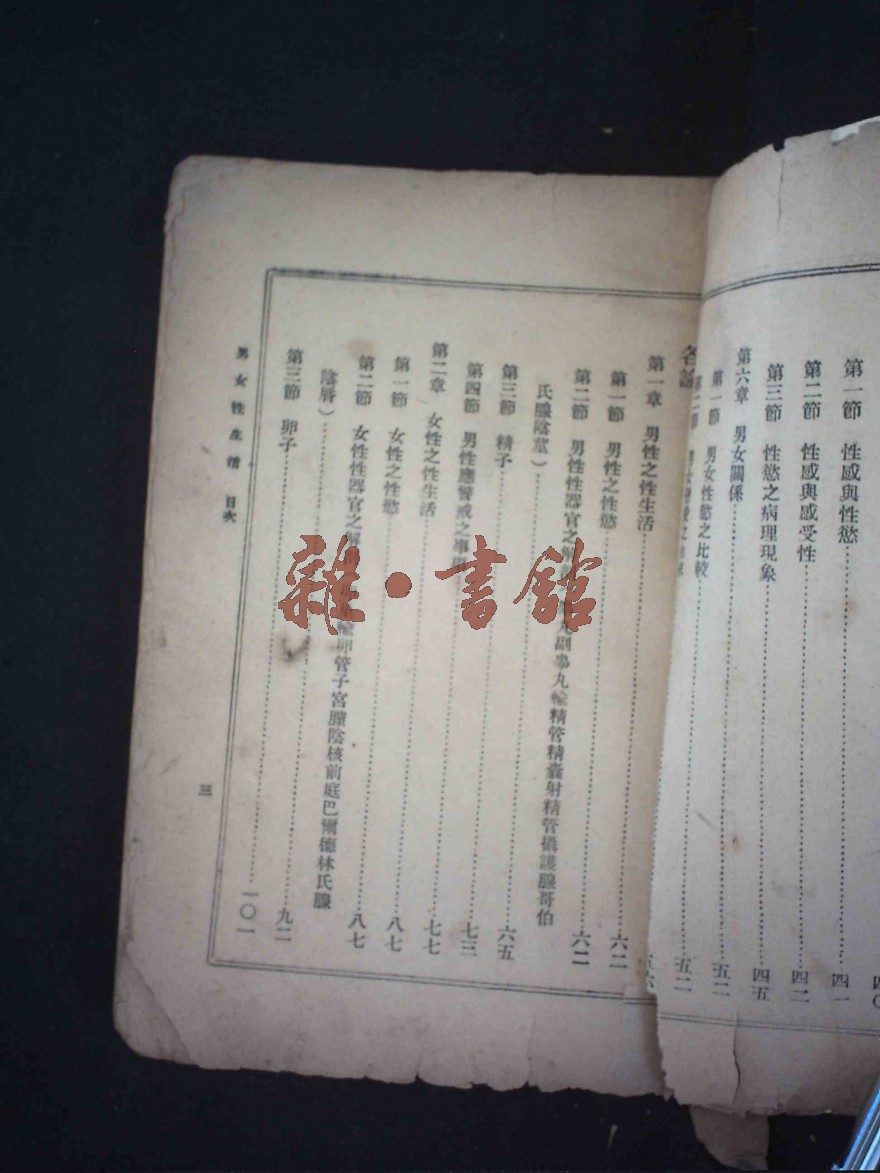 四〇
第一節　性感與性慾……四一
第二節　性感與感受性……四二
第三節　性慾之病理現象……四五
第六章　男女關係……五二
第一節　男女性慾之比較……五二
各論
第一章　男性之性生活……六二
第一節　男性之性慾……六二
第二節　男性性器官之解　丸副睾丸輸精管精囊射精管攝護腺哥伯
氏腺陰莖）……六五
第三節　精子……七三
第四節　男性應警戒之事項……七七
第二章　女性之性生活……八七
第一節　女性之性慾……八七
第二節　女性性器官之解　輸卵管子宮膣陰核前庭巴爾德林氏腺
陰唇）……九二
第三節　卵子……一〇一
男女性生活　目次
三
雜·書館